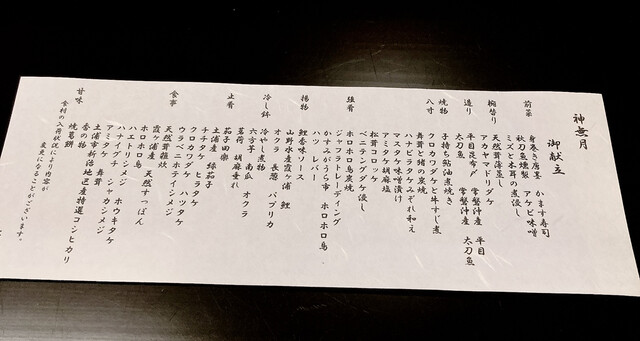 神無月
御献立
前菜
身巻き唐墨 かます寿司
秋刀魚燻製 アケビ味噌
ミズと木耳の煮浸し
椀替り
天然茸薄蒸し
アカヤマドリダケ
造り
平目昆布〆 常磐沖産 平目
太刀魚 常磐沖産 太刀魚
焼物
子持ち鮎油煮焼き
八寸
クロカワダケと牛すじ煮
舞茸と猪の炭焼
ハナビラタケみぞれ和え
マスタケ味噌漬け
アミタケ胡麻塩
松茸コロッケ
ベニテングダケ浸し
強肴
ホロホロ鳥炭焼
ジャフラトレーディング
かすみがうら市 ホロホロ鳥
ハツ レバー
揚物
鯉香味ソース
山野水産霞ヶ浦 鯉
オクラ 長葱 パプリカ
冷し鉢
冷やし煮物
六方芋 南瓜 オクラ
茗荷 胡麻垂れ
止肴
茄子田楽
土浦産 緑茄子
チチタケ ヒラタケ
クロカワダケ ハツタケ
ウラベニホテイシメジ
食事
天然茸雑炊
霞ヶ浦産 天然すっぽん
ホロホロ鳥
ハエトリシメジ ホウキタケ
ハナイグチ シャカシメジ
アミタケ 舞茸
土浦市新治地区産特選コシヒカリ
香の物
甘味
焼葛餅
食材の入荷状況により内容が
変更になることがございます。